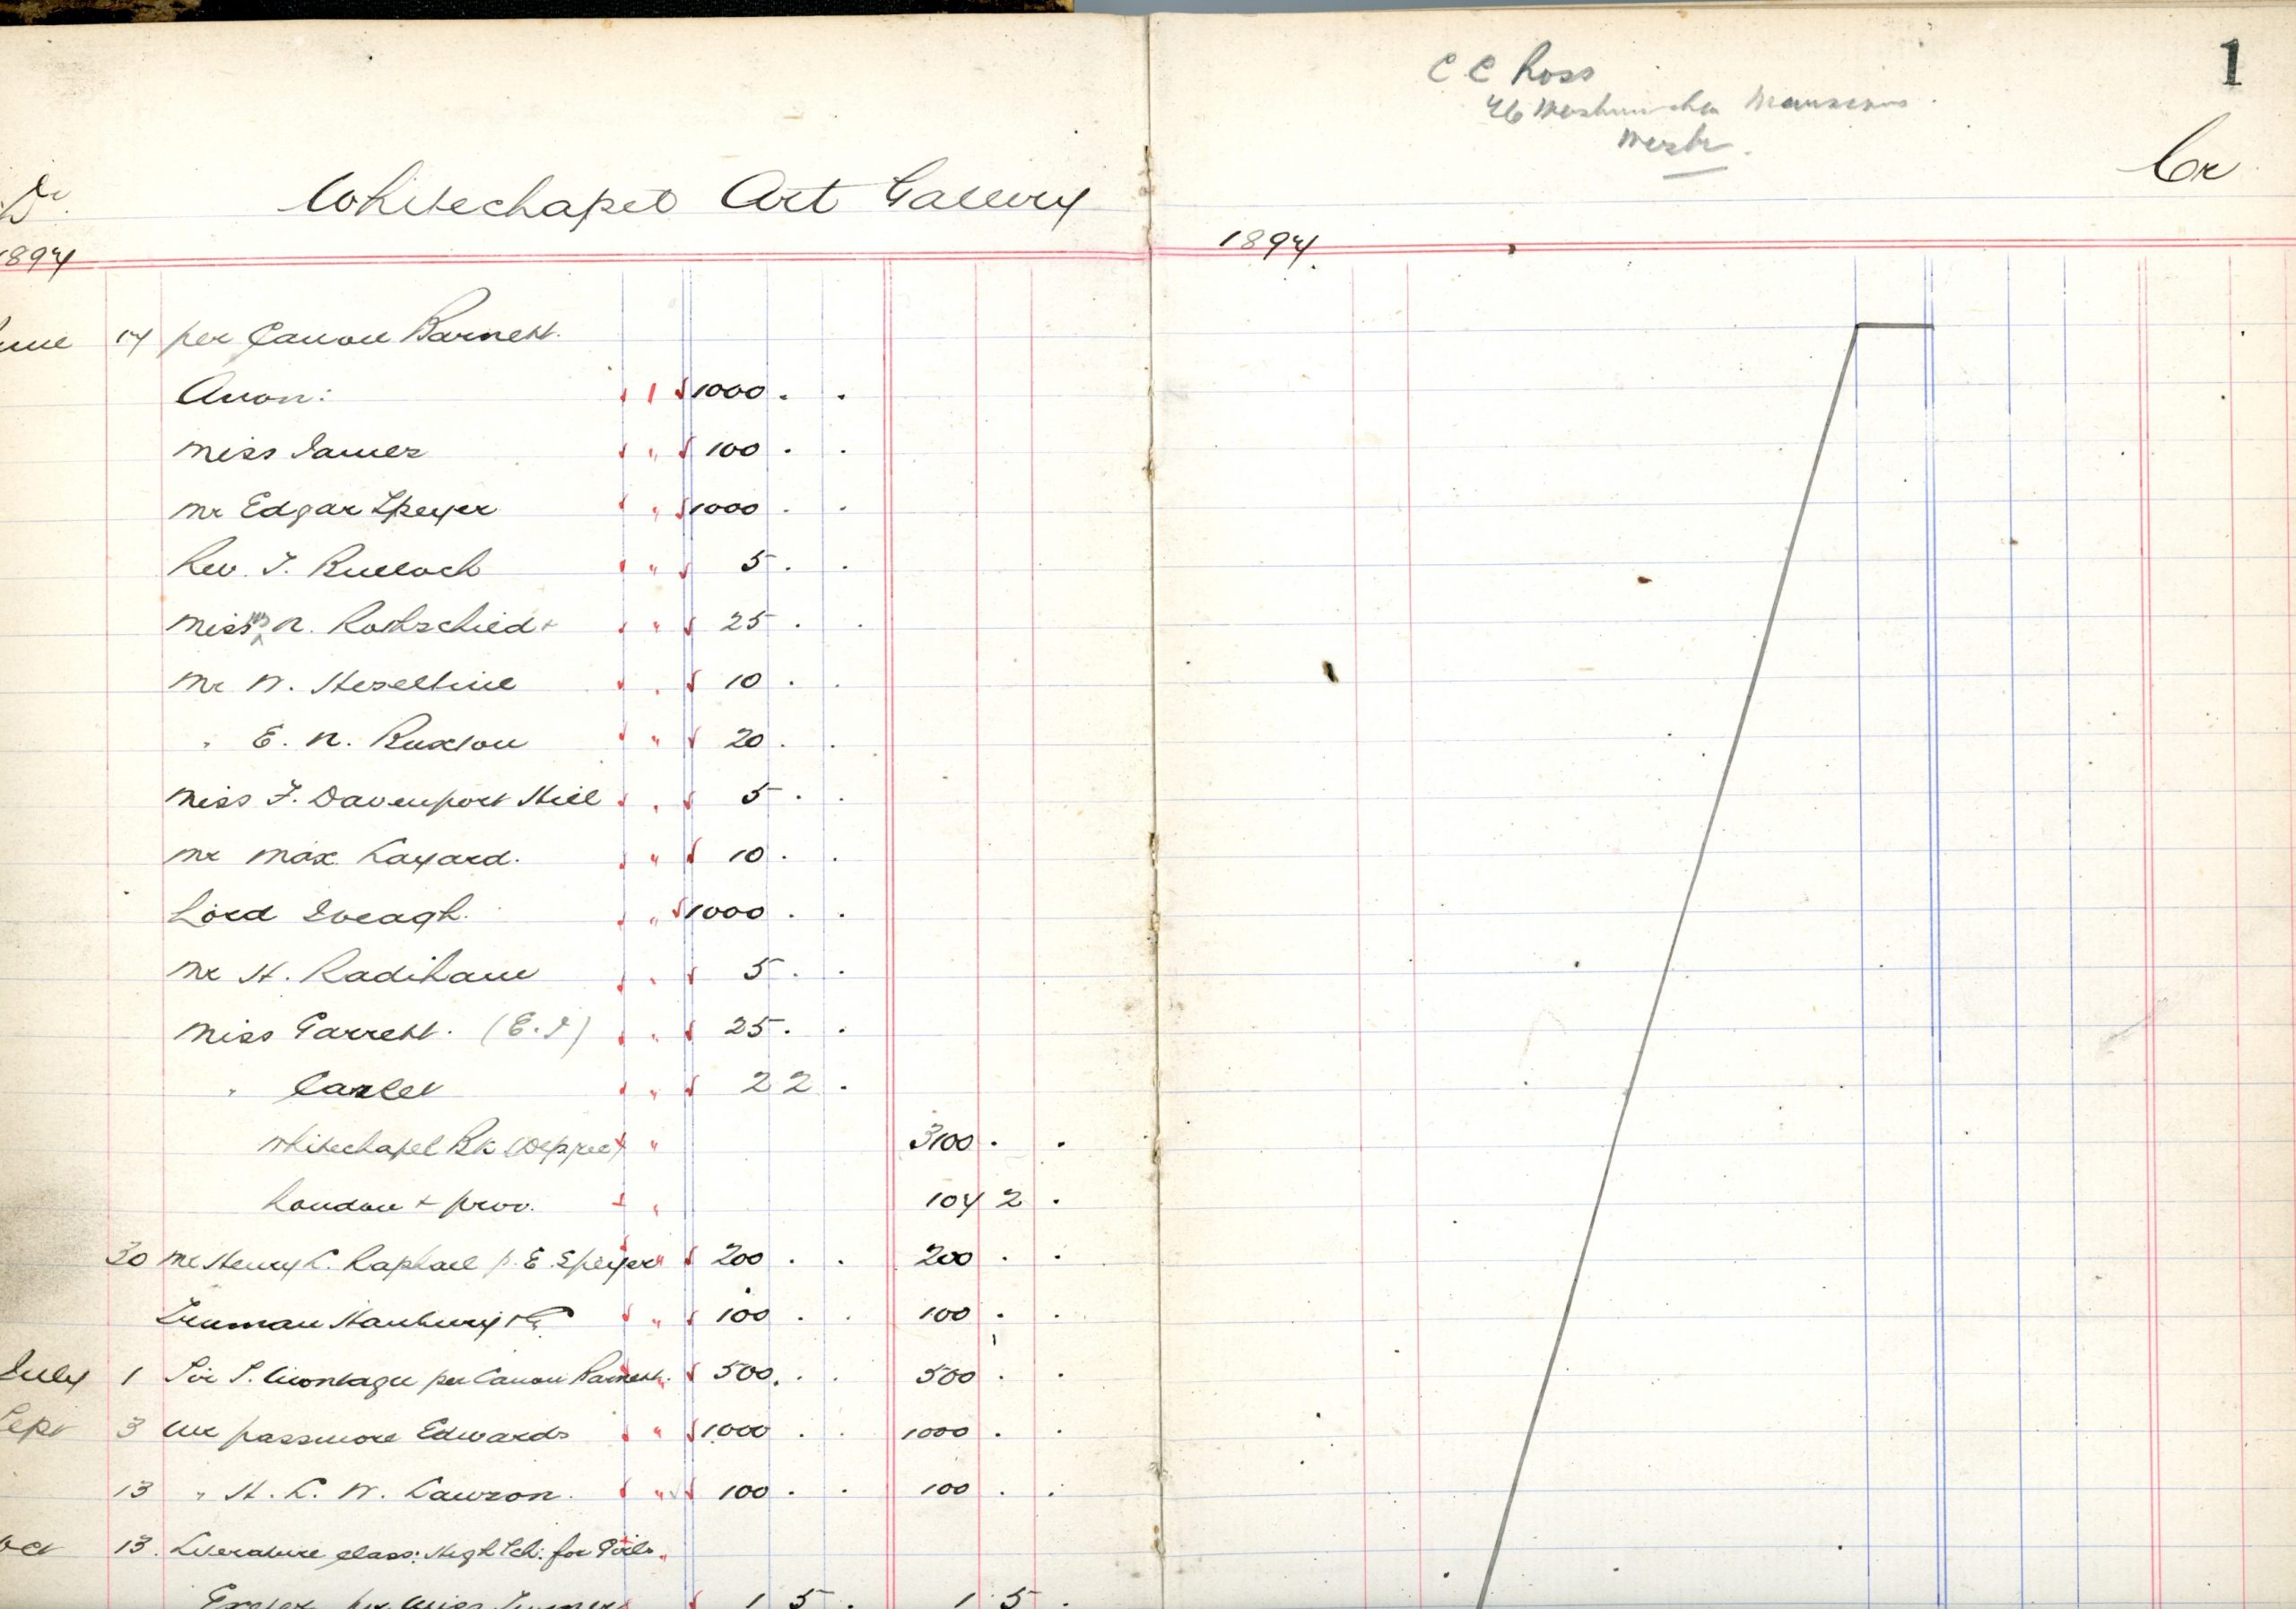 Dr
Whitechapel Art Gallery
1897
June 17 per Canon Barnett.
Anon: 1 1000 . .
Miss James " 100 . .
Mr Edgar Speyer " 1000 . .
Rev. J. Bulloch " 5 . .
Miss N. Rothschild " 25 . .
Mr W. Heseltine " 10 . .
" E. N. Buxton " 20 . .
Miss F. Davenport Hill " 5 . .
Mr Max Layard. " 10 . .
Lord Iveagh. " 1000 . .
Mr H. Radiham " 5 . .
Miss Garrett. (E. J) " 25 . .
" " 2 2 .
Whitechapel Bk " 3100 . .
London + prov. " 107 2 .
30 Mr Henry L. Raphael p. E. Speyer " 200 . . 200 . .
Truman Hanbury & Co " 100 . . 100 . .
July 1 Sir S. Montagu per Canon Barnett. " 500 . . 500 . .
Sept 3 Mr Passmore Edwards " 1000 . . 1000 . .
13 " H. L. W. Lawson. " 100 . . 100 . .
Oct 13. Literature class: High Sch: for Girls "
Exeter per Miss 1 5 . 1 5 .
C C Ross
46 Westminster Mansions.
Westr.
1
Cr
1897.